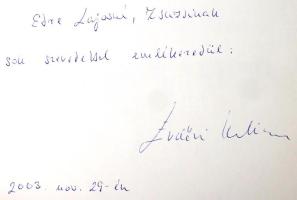 Edre Lajosné, Zsuzsinak
sok szeretettel emlékezésül:
2003. nov. 29-én